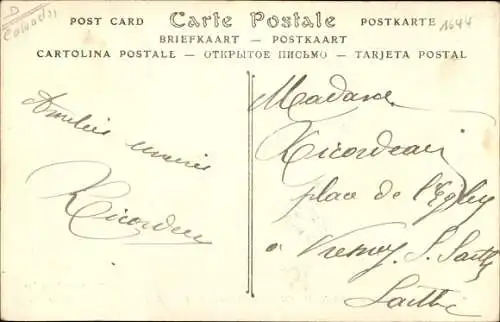 D
Calvados
POST CARD
Carte Postale
POSTKARTE
1644
BRIEFKAART — POSTKAART
CARTOLINA POSTALE — ОТКРЫТОЕ ПИСЬМО — TARJETA POSTAL
Madame
Ricordeau
place de l'Eglise
a Fresnay S. Sarthe
Sarthe
Amitiés
Ricordeau